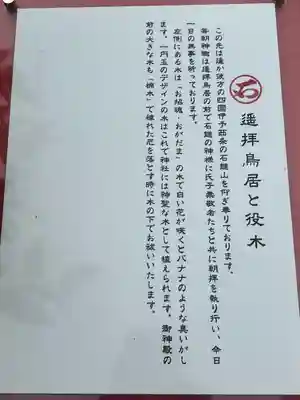 石
遥拝鳥居と役木
この先は遥か彼方の四国伊予西条の石鎚山を仰ぎ奉りております。
毎朝神職は遥拝鳥居の前で石鎚の神様に氏子崇敬者たちと共に朝拝を執り行い、今日
一日の無事を祈っております。
左側にある木は「お招魂・おがたま」の木で白い花が咲くとバナナのような臭いがし
ます。一円玉のデザインの木はこれで神社には神聖な木として植えられます。御神殿の
前の大きな木も「楠木」で穢れた厄を落とす時に木の下でお祓いいたします。